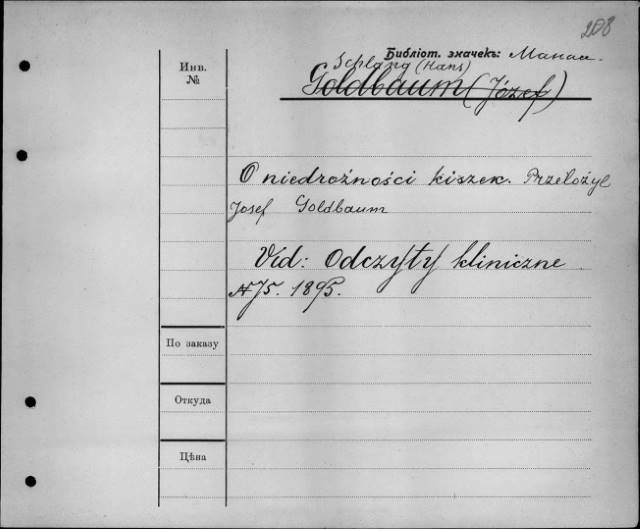 208
Библіот. значекъ:
Schlang (Hans)
Goldbaum (Józef)
Инв.
№
O niedrożności kiszek. Przełożył
Josef Goldbaum
Vid: Odczyty kliniczne
N 75. 1895.
По заказу
Откуда
Цѣна